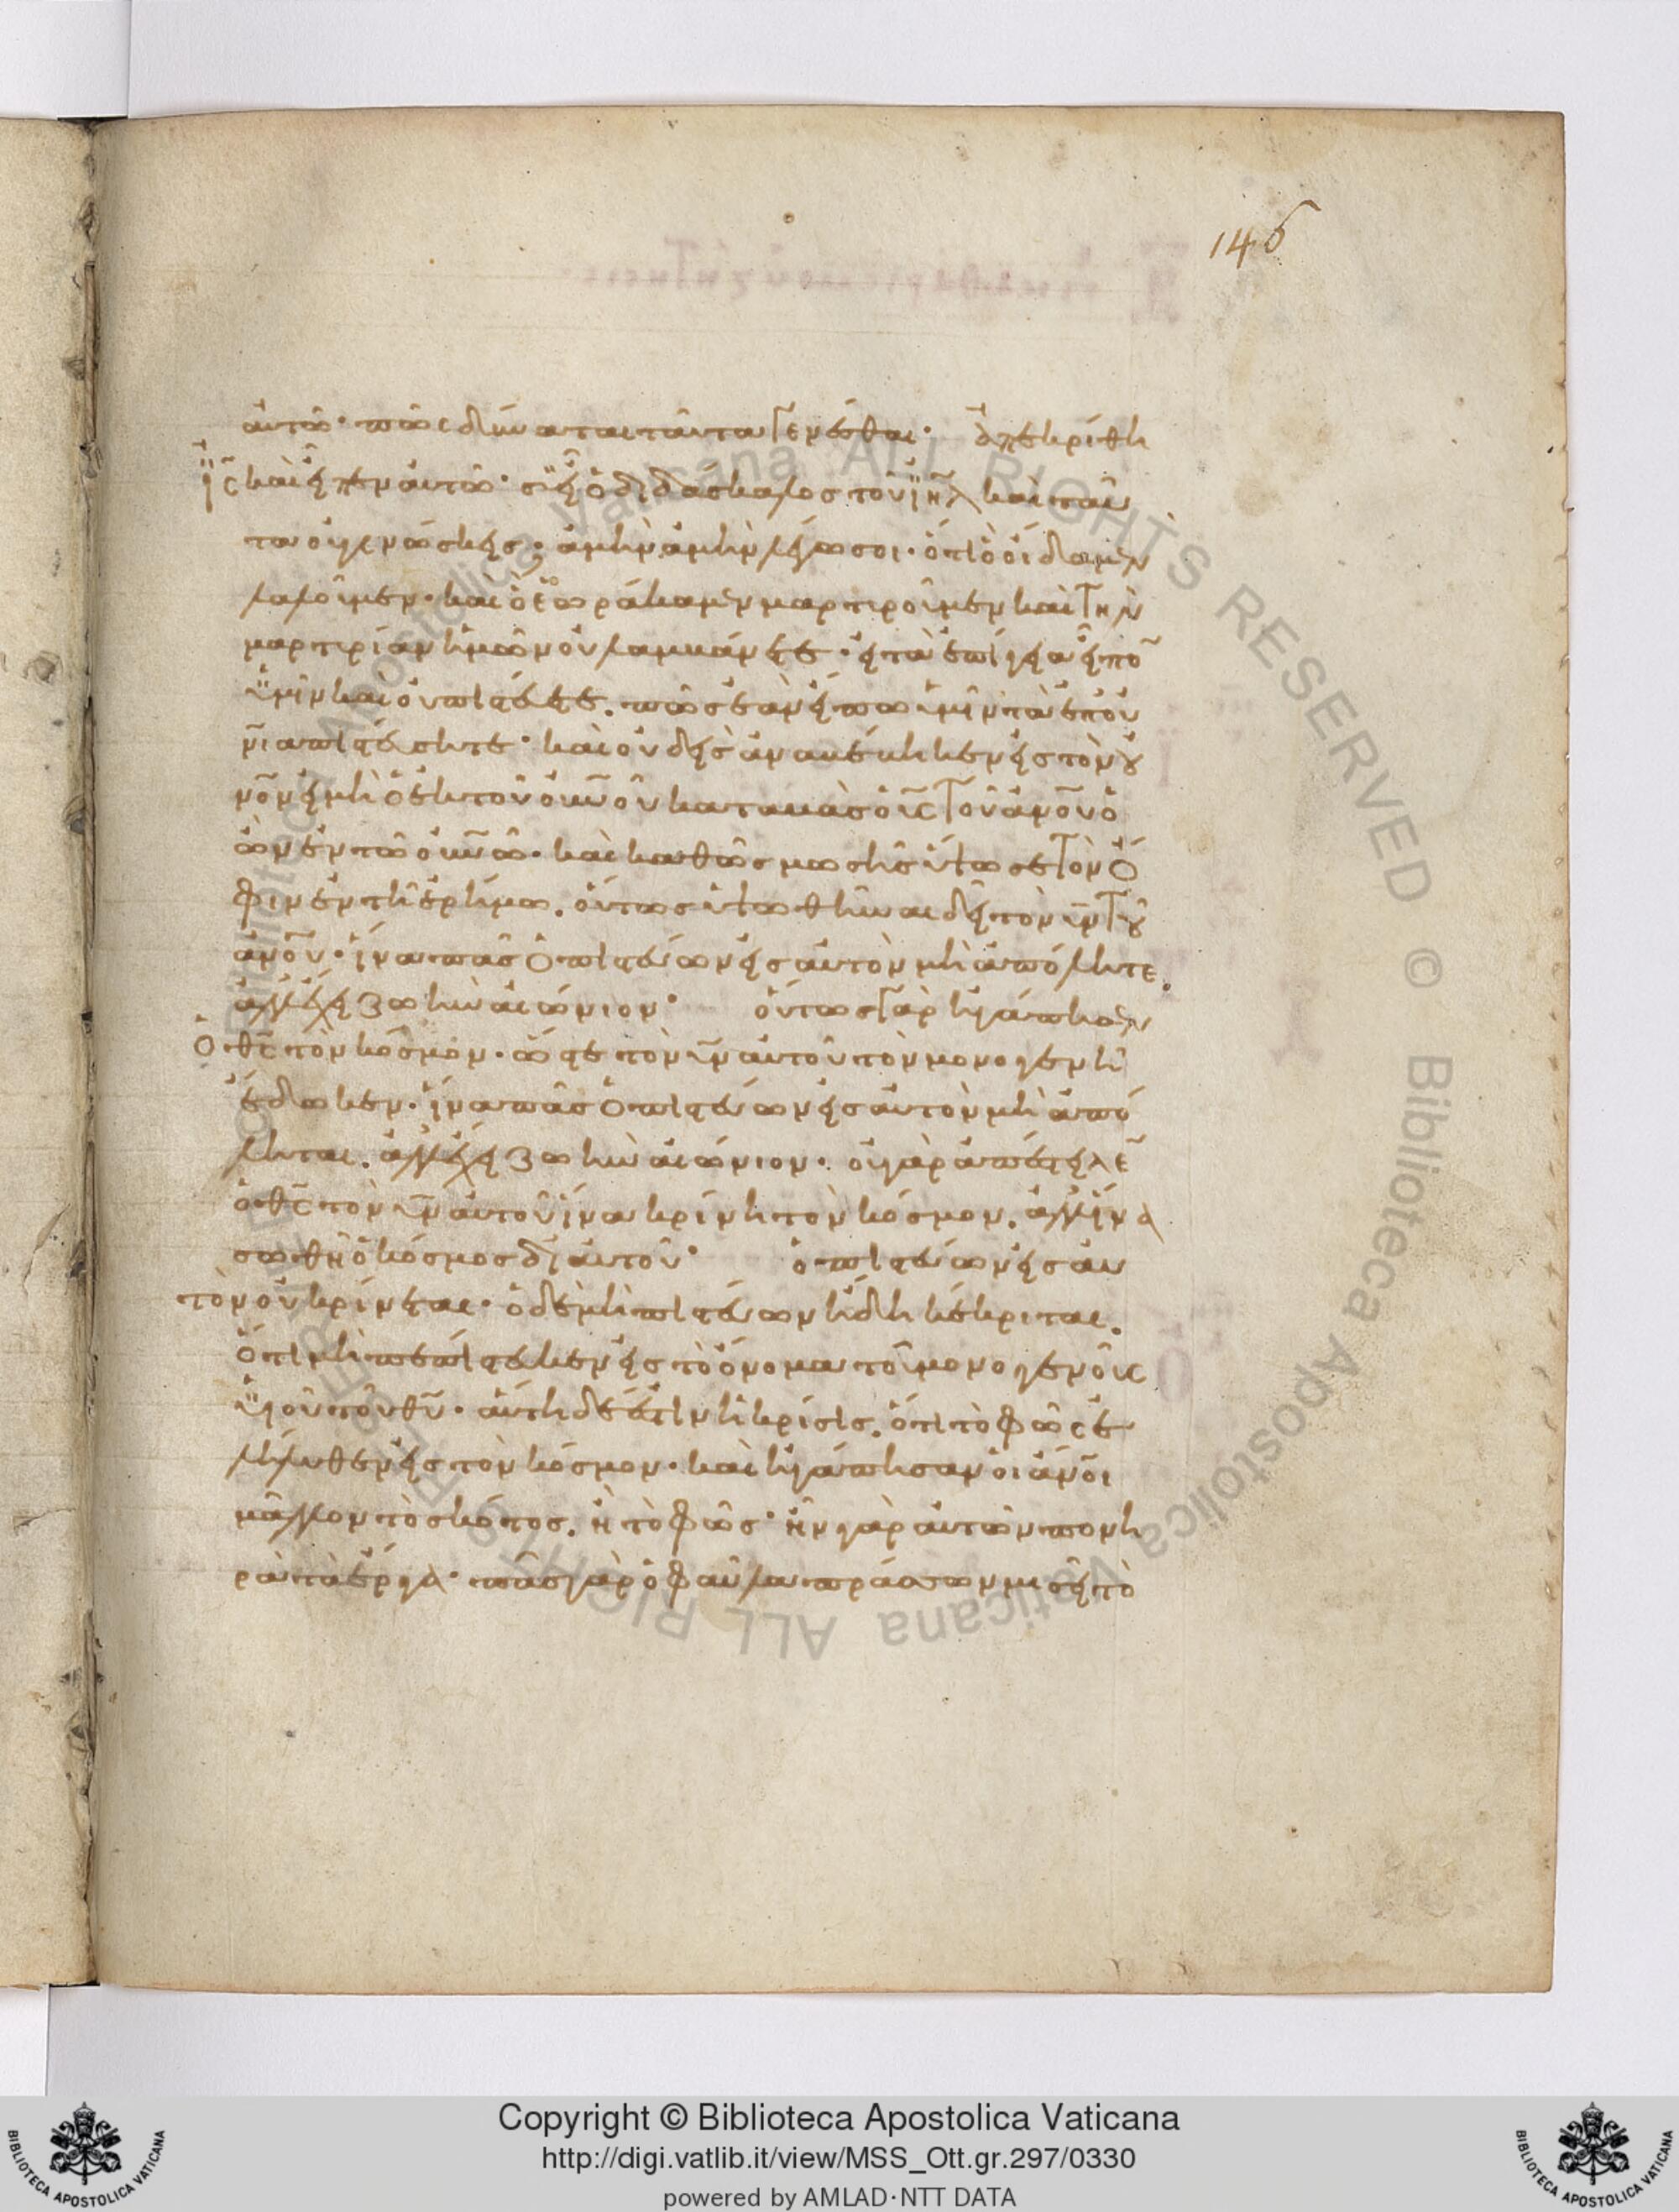 146
αὐτῶ· πῶς δύναται ταῦτα γενέσθαι· ἀπεκρίθη
ἰς καὶ εἶπεν αὐτῶ· σὺ εἶ ὁ διδάσκαλος τοῦ ιηλ καὶ ταῦ
τα οὐ γινώσκεις; ἀμὴν ἀμὴν λέγω σοι· ὅτι ὃ οἴδαμεν
λαλοῦμεν· καὶ ὃ ἑωράκαμεν μαρτυροῦμεν καὶ τὴν
μαρτυρίαν ἡμῶν οὐ λαμβάνετε· εἰ τὰ ἐπίγεια εἶπον
ὑμῖν καὶ οὐ πιστεύετε. πῶς ἐὰν εἴπω ὑμῖν τὰ ἐπου
νια πιστεύσητε· καὶ οὐδεὶς ἀναβέβηκεν εἰς τὸν ου
νον εἰ μὴ ὁ ἐκ τοῦ ουνου καταβὰς ὁ υς τοῦ ανου ὁ
ὢν ἐν τῶ ουνω· καὶ καθὼς μωσῆς ὕψωσε τὸν ὄ
φιν ἐν τῆ ἐρήμω. οὕτως ὑψωθῆναι δεῖ τὸν υν τοῦ
ανου· ἵνα πᾶς ὁ πιστεύων εἰς αὐτὸν μὴ ἀπόληται.
ἀλλ᾽ ἔχει ζωὴν αἰώνιον· οὕτως γὰρ ἠγάπησεν
ὁ θς τὸν κόσμον· ὥστε τὸν υν αὐτοῦ τὸν μονογενῆ
ἔδωκεν· ἵνα πᾶς ὁ πιστεύων εἰς αὐτὸν μὴ ἀπό
ληται. ἀλλ᾽ ἔχει ζωὴν αἰώνιον· οὐ γὰρ ἀπέστειλεν
ὁ θς τὸν υν αὐτοῦ ἵνα κρίνη τὸν κόσμον. ἀλλ᾽ ἵνα
σωθῆ ὁ κόσμος δι᾽ αὐτοῦ· ὁ πιστεύων εἰς αὐ
τὸν οὐ κρίνεται· ὁ δὲ μὴ πιστεύων ἤδη κέκριται.
ὅτι μὴ πεπίστευκεν εἰς τὸ ὄνομα τοῦ μονογενοῦς
υἱοῦ τοῦ θυ· αὕτη δέ ἐστιν ἡ κρίσις. ὅτι τὸ φῶς ἐ
λήλυθεν εἰς τὸν κόσμον· καὶ ἠγάπησαν οἱ ανοι
μᾶλλον τὸ σκότος. ἢ τὸ φῶς· ἦν γὰρ αὐτῶν πονη
ρὰ τὰ ἔργα· πᾶς γὰρ ὁ φαῦλα πράσσων μισεῖ τὸ
Copyright © Biblioteca Apostolica Vaticana
http://digi.vatlib.it/view/MSS_Ott.gr.297/0330
powered by AMLAD·NTT DATA